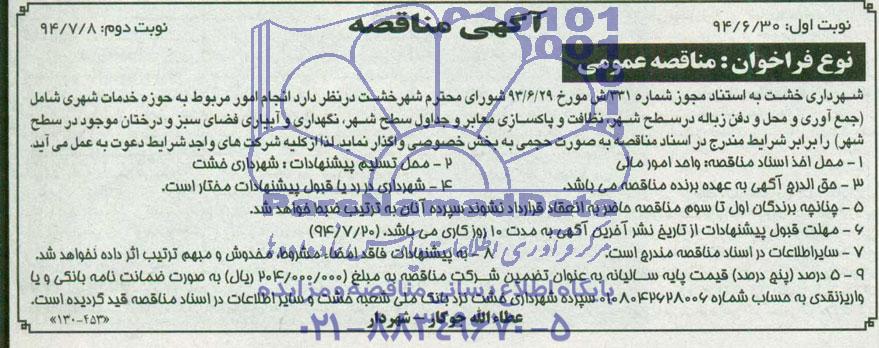 آگهی مناقصه
نوبت اول: ۹۴/۶/۳۰
نوبت دوم: ۹۴/۷/۸
نوع فراخوان: مناقصه عمومی
شهرداری خشت به استناد مجوز شماره ۳۳۱/ش مورخ ۹۳/۶/۲۹ شورای محترم شهر خشت در نظر دارد انجام امور مربوط به حوزه خدمات شهری شامل
(جمع آوری و حمل و دفن زباله در سطح شهر، نظافت و پاکسازی معابر و جداول سطح شهر، نگهداری و آبیاری فضای سبز و درختان موجود در سطح
شهر) را برابر شرایط مندرج در اسناد مناقصه به صورت حجمی به بخش خصوصی واگذار نماید. لذا از کلیه شرکت های واجد شرایط دعوت به عمل می آید.
۱- محل اخذ اسناد مناقصه: واحد امور مالی
۲- محل تسلیم پیشنهادات: شهرداری خشت
۳- حق الدرج آگهی به عهده برنده مناقصه می باشد.
۴- شهرداری در رد یا قبول پیشنهادات مختار است.
۵- چنانچه برندگان اول تا سوم مناقصه حاضر به انعقاد قرارداد نشوند سپرده آنان به ترتیب ضبط خواهد شد.
۶- مهلت قبول پیشنهادات از تاریخ نشر آخرین آگهی به مدت ۱۰ روز کاری می باشد. (۹۴/۷/۲۰)
۷- سایر اطلاعات در اسناد مناقصه مندرج است.
۸- به پیشنهادات فاقد امضا، مشروط، مخدوش و مبهم ترتیب اثر داده نخواهد شد.
۹- ۵ درصد (پنج درصد) قیمت پایه سالیانه به عنوان تضمین شرکت مناقصه به مبلغ (۲۰۴/۰۰۰/۰۰۰ ریال) به صورت ضمانت نامه بانکی و یا
واریز نقدی به حساب شماره ۰۱۰۸۰۴۲۶۲۸۰۰۶ سپرده شهرداری خشت نزد بانک ملی شعبه خشت و سایر اطلاعات در اسناد مناقصه قید گردیده است.
عطاء الله جوکار - شهردار
«۱۳۰-۴۵۳»
ParsNamadData
پایگاه اطلاع رسانی مناقصه و مزایده
۰۲۱-۸۸۳۴۹۶۷۰-۵